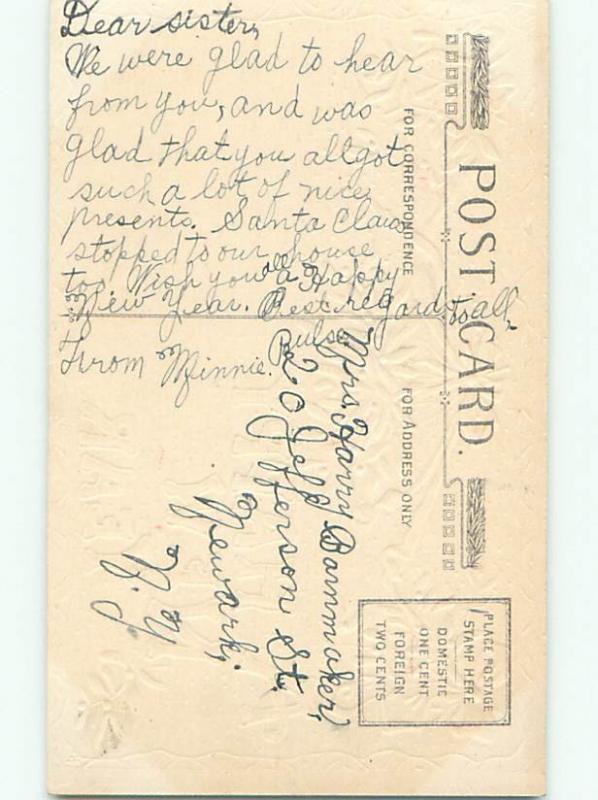 Dear sister,
We were glad to hear
from you, and was
glad that you all got
such a lot of nice
presents. Santa Claus
stopped to our house
too. Wish you all a Happy
New Year. Best regard to all,
From Minnie.
POST CARD.
FOR CORRESPONDENCE
FOR ADDRESS ONLY
Mrs. Harry Barnmaker,
20 Jefferson St.
Newark,
N. Y.
PLACE POSTAGE
STAMP HERE
DOMESTIC
ONE CENT
FOREIGN
TWO CENTS